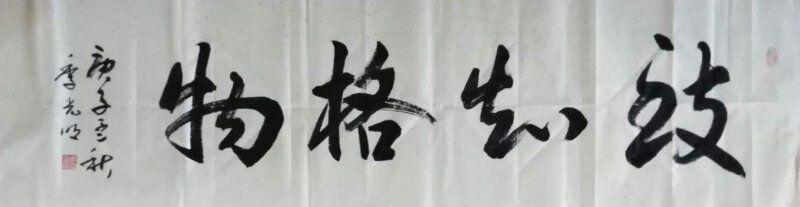 致知格物
庚子孟秋
季光明